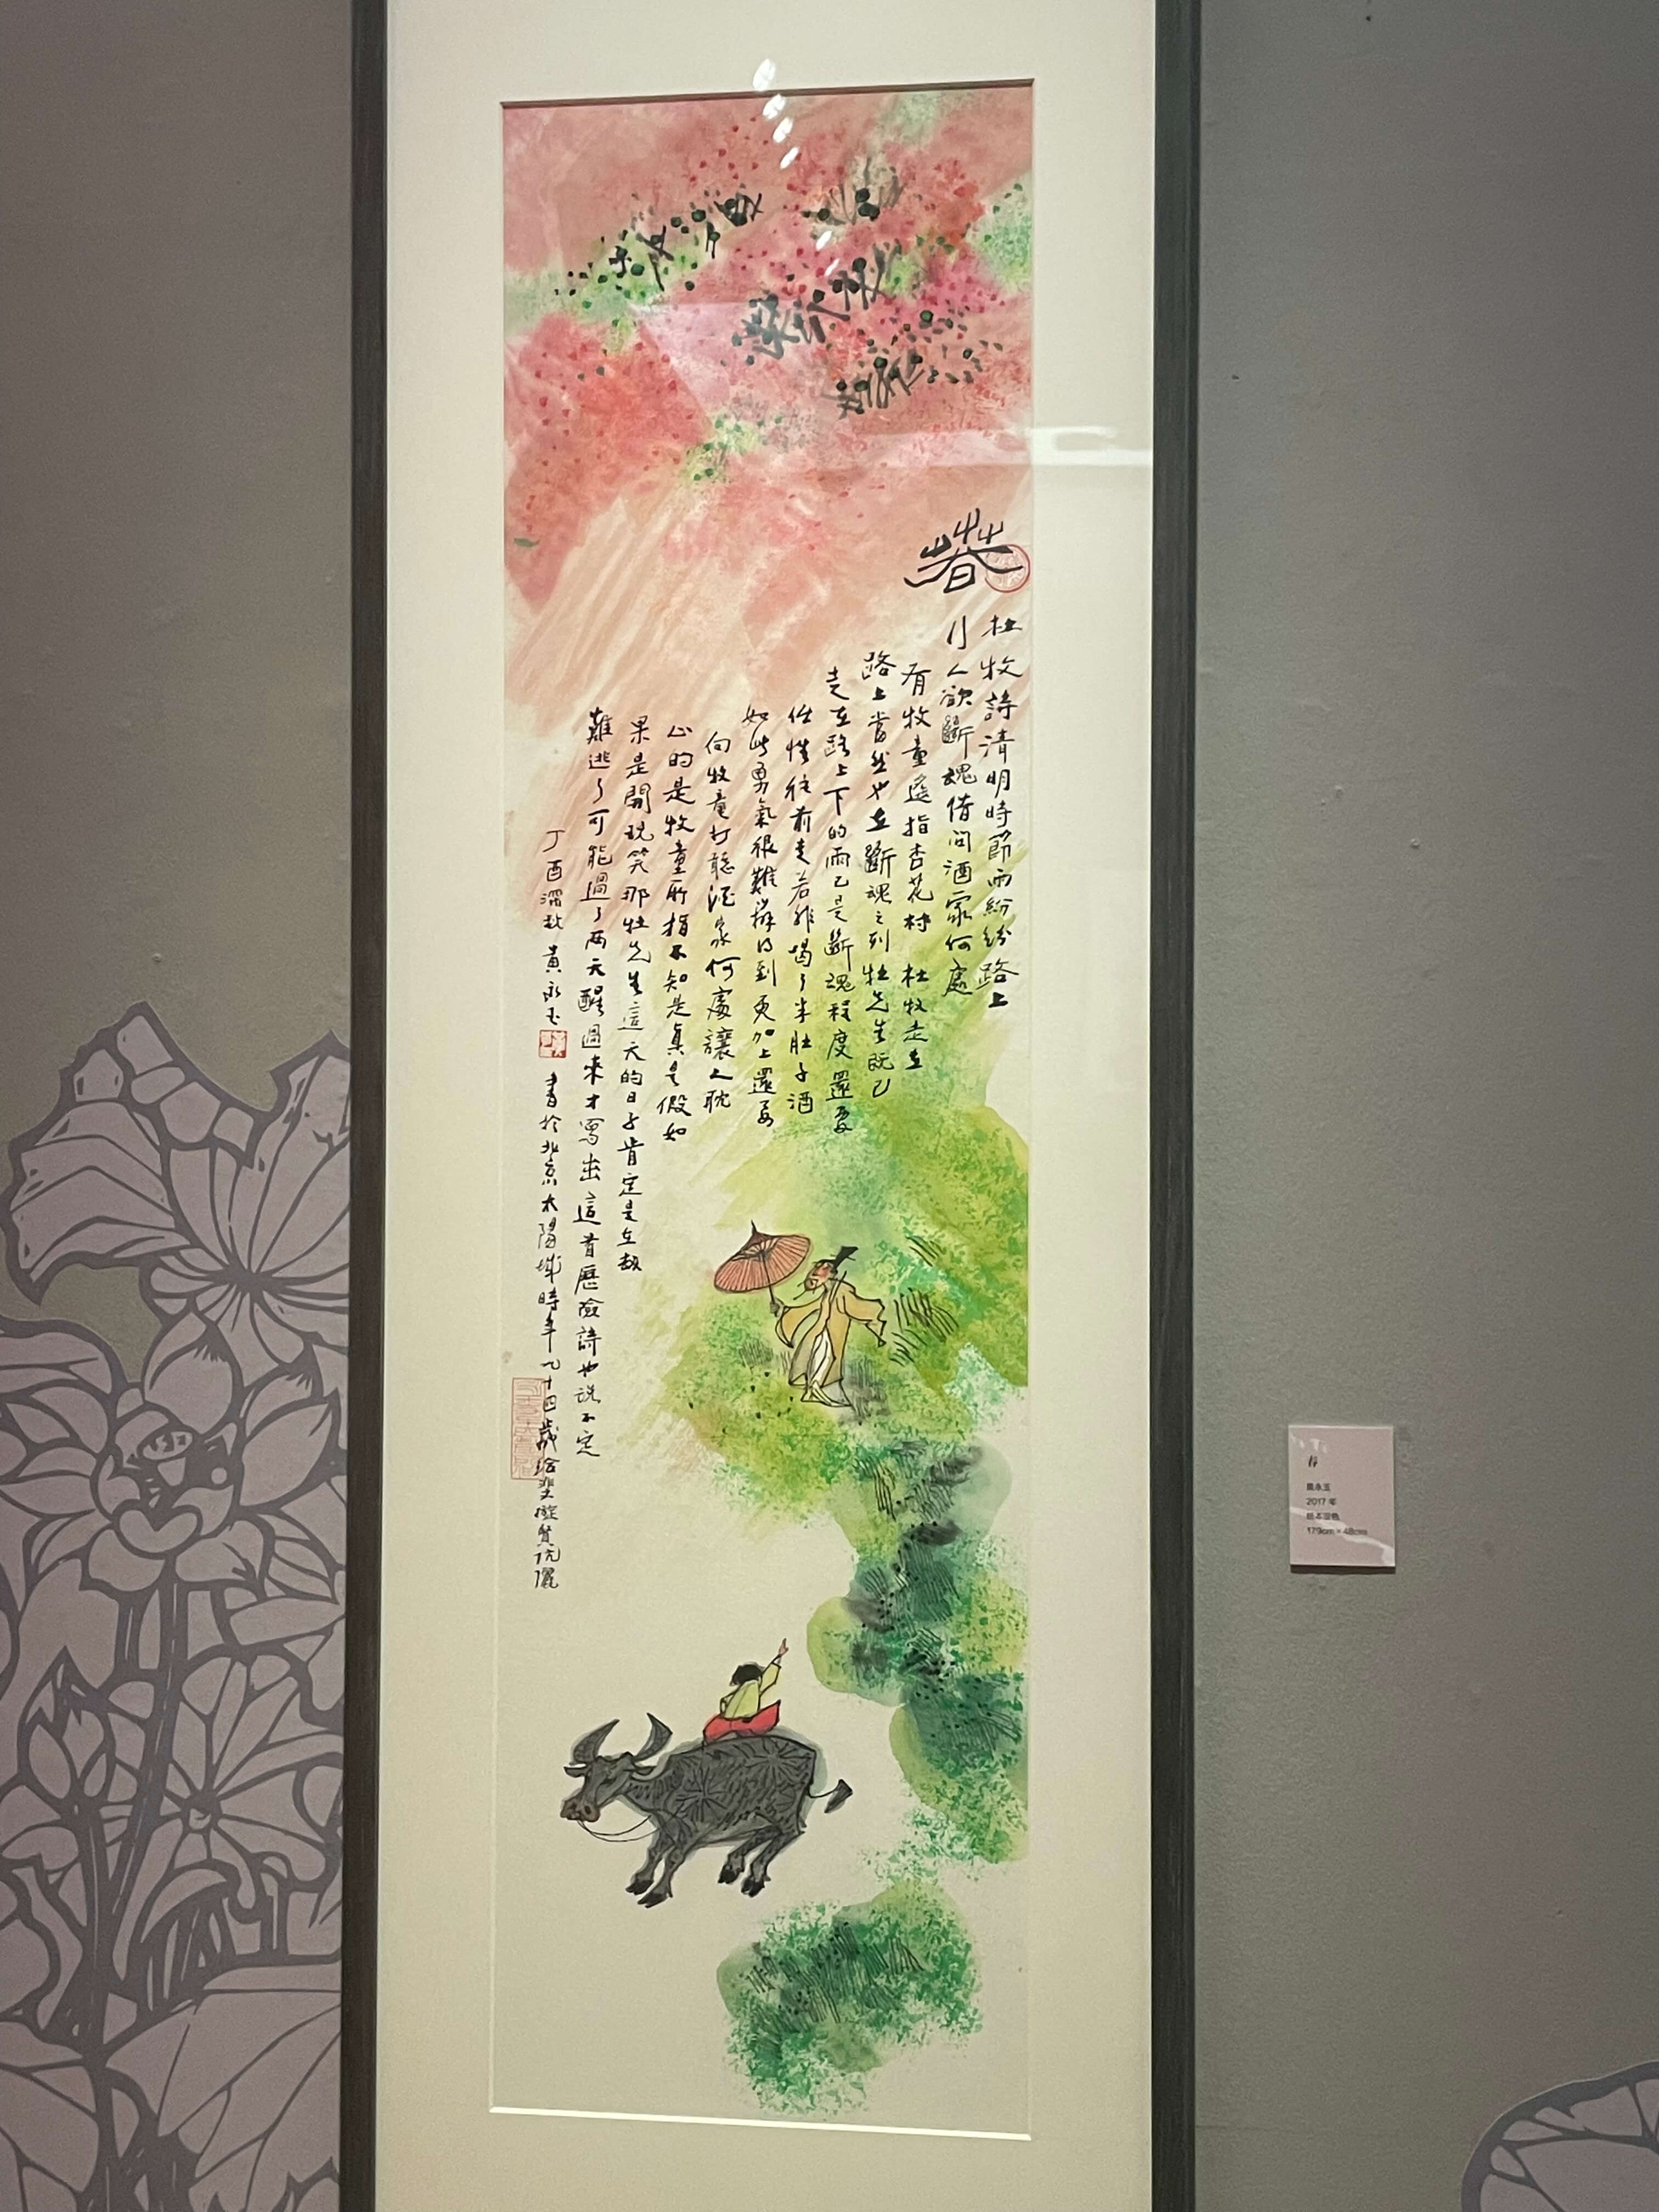 春
杜牧詩清明時節雨紛紛路上
行人欲斷魂借問酒家何處
有牧童遙指杏花村 杜牧走在
路上當然也在斷魂之列杜先生既已
走在路上下的雨已是斷魂程度還要
任性往前走若非喝了半肚子酒
如此勇氣很難辦得到更加上還要
向牧童打聽酒家何處讓人耽
心的是牧童所指不知是真是假如
果是開玩笑那杜先生這天的日子肯定是在劫
難逃了可能過了兩天醒過來才寫出這首歷險詩也說不定
丁酉 黃永玉 書於北京太陽城時年九十四歲 賢伉儷
春
黄永玉
2017 年
纸本设色
179cm × 48cm